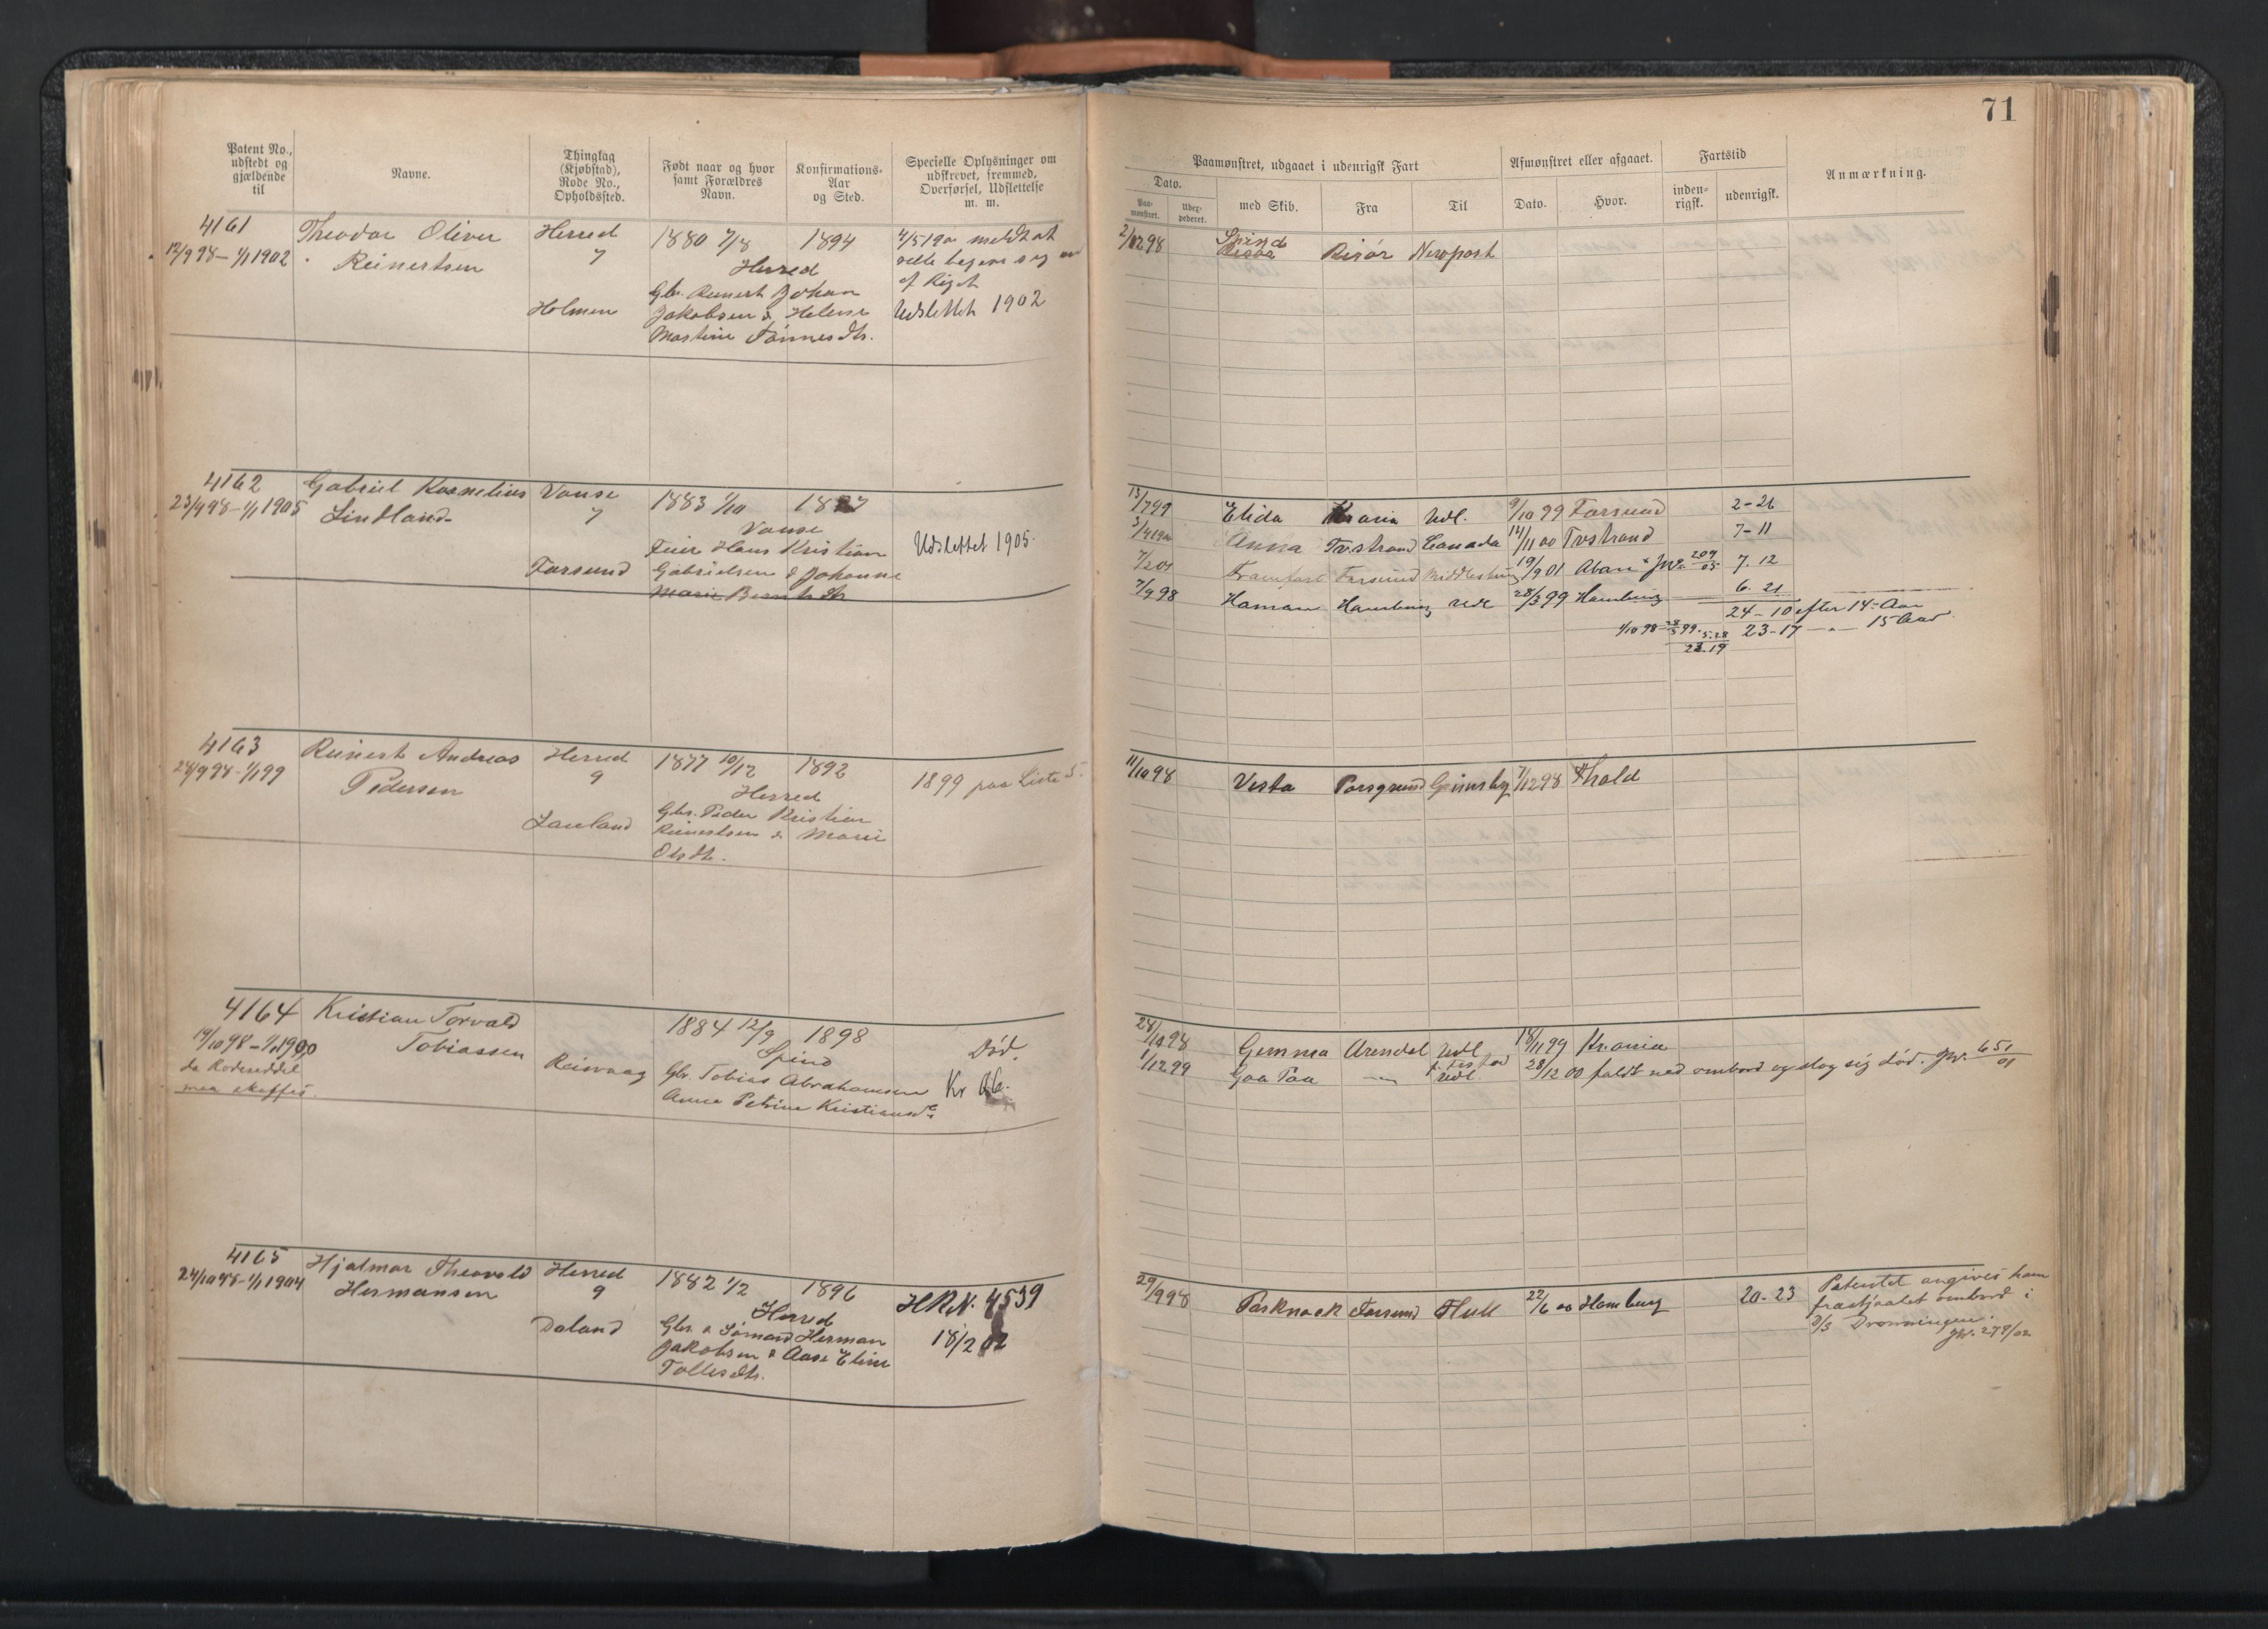 71
Patent No., udstedt og gjældende til
Navne.
Thinglag (Kjøbstad), Rode No., Opholdssted.
Født naar og hvor samt Forældres Navn.
Konfirmations-Aar og Sted.
Specielle Oplysninger om udskrevet, fremmed, Overførsel, Udslettelse m. m.
Paamønstret, udgaaet i udenrigsk Fart
Dato.
Paamønstret.
Udexpederet.
med Skib.
Fra
Til
Afmønstret eller afgaaet.
Dato.
Hvor.
Fartstid
indenrigsk.
udenrigsk.
Anmærkning.
4161
12/9 98 – 1/1 1902
Theodor Oliver
Reinertsen
Herred
7
Holmen
1880 7/8 1894
Herred
Gbr. Reinert Johan
Jakobsen & Helene
Martine Tønnesdtr.
4/5 190 meldt at
ville begive sig ud
af Riget
Udslettet 1902
2/10 98
Spind
Risør Newport
4162
23/9 98 – 1/1 1905
Gabriel Kornelius
Lindland
Vanse
7
Farsund
1883 1/10 1897
Vanse
Feier Hans Kristian
Gabrielsen & Johanne
Marie Berntsdtr
Udslettet 1905.
13/7 99 Elida Krania Udl. 9/10 99 Farsund 2-26
3/4 1900 Anna Tvstrand Canada 14/11 00 Tvstrand 7-11
7/2 01 Framfart Farsund Middlesburg 19/9 01 Åban Jw. 209/05 7.12
7/9 98 Haman Hamburg Udl 28/3 99 Hamburg 6.21
24-10 efter 14 Aar
1/10 98 – 28/3 99. 5.28 23-17 – " – 15 Aar
23.19
4163
28/9 98 – 1/1 99
Reinert Andreas
Pedersen
Herred
9
Lauland
1877 10/12 1892
Herred
Gbr. Peder Kristian
Reinertsen & Marie
Olsdtr.
1899 paa Liste S.
11/10 98 Vesta Porsgrund Grimsby 7/12 98 Fhald
4164
19/10 98 – 1/1 1900
da Rodeseddel
maa skaffes.
Kristian Torvald
Tobiassen
Reisvaag
1884 12/9 1898
Spind
Gbr. Tobias Abrahamsen
Anne Petrine Kristiansdr
Død.
Kr
24/10 98 Gemma Arendal Udl 18/11 99 Kr.ania
1/12 99 Gaa Paa – " – Udl. 28/12 00 faldt ned ombord og slog sig død. Jw. 651/01
4165
24/10 98 – 1/1 1904
Hjalmar Theovald
Hermansen
Herred
9
Daland
1882 1/2 1896
Herred
Gbr. & Sømand Herman
Jakobsen & Aase Eline
Tollesdtr.
HRN. 4539
18/2 02
29/9 98 Parknook Farsund Hull 22/6 00 Hamburg 20-23
Patentet angives ham
frastjaalet ombord i
D/S Dronningen.
Jw. 278/02